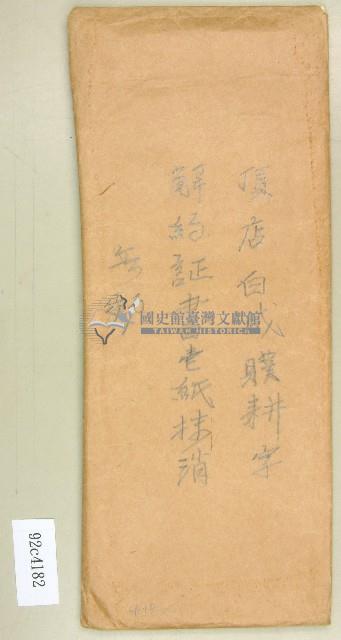 頂店白戊贌耕字
解約証書壱紙抹消
無効
國史館臺灣文獻館
TAIWAN HISTORICA
92c4182